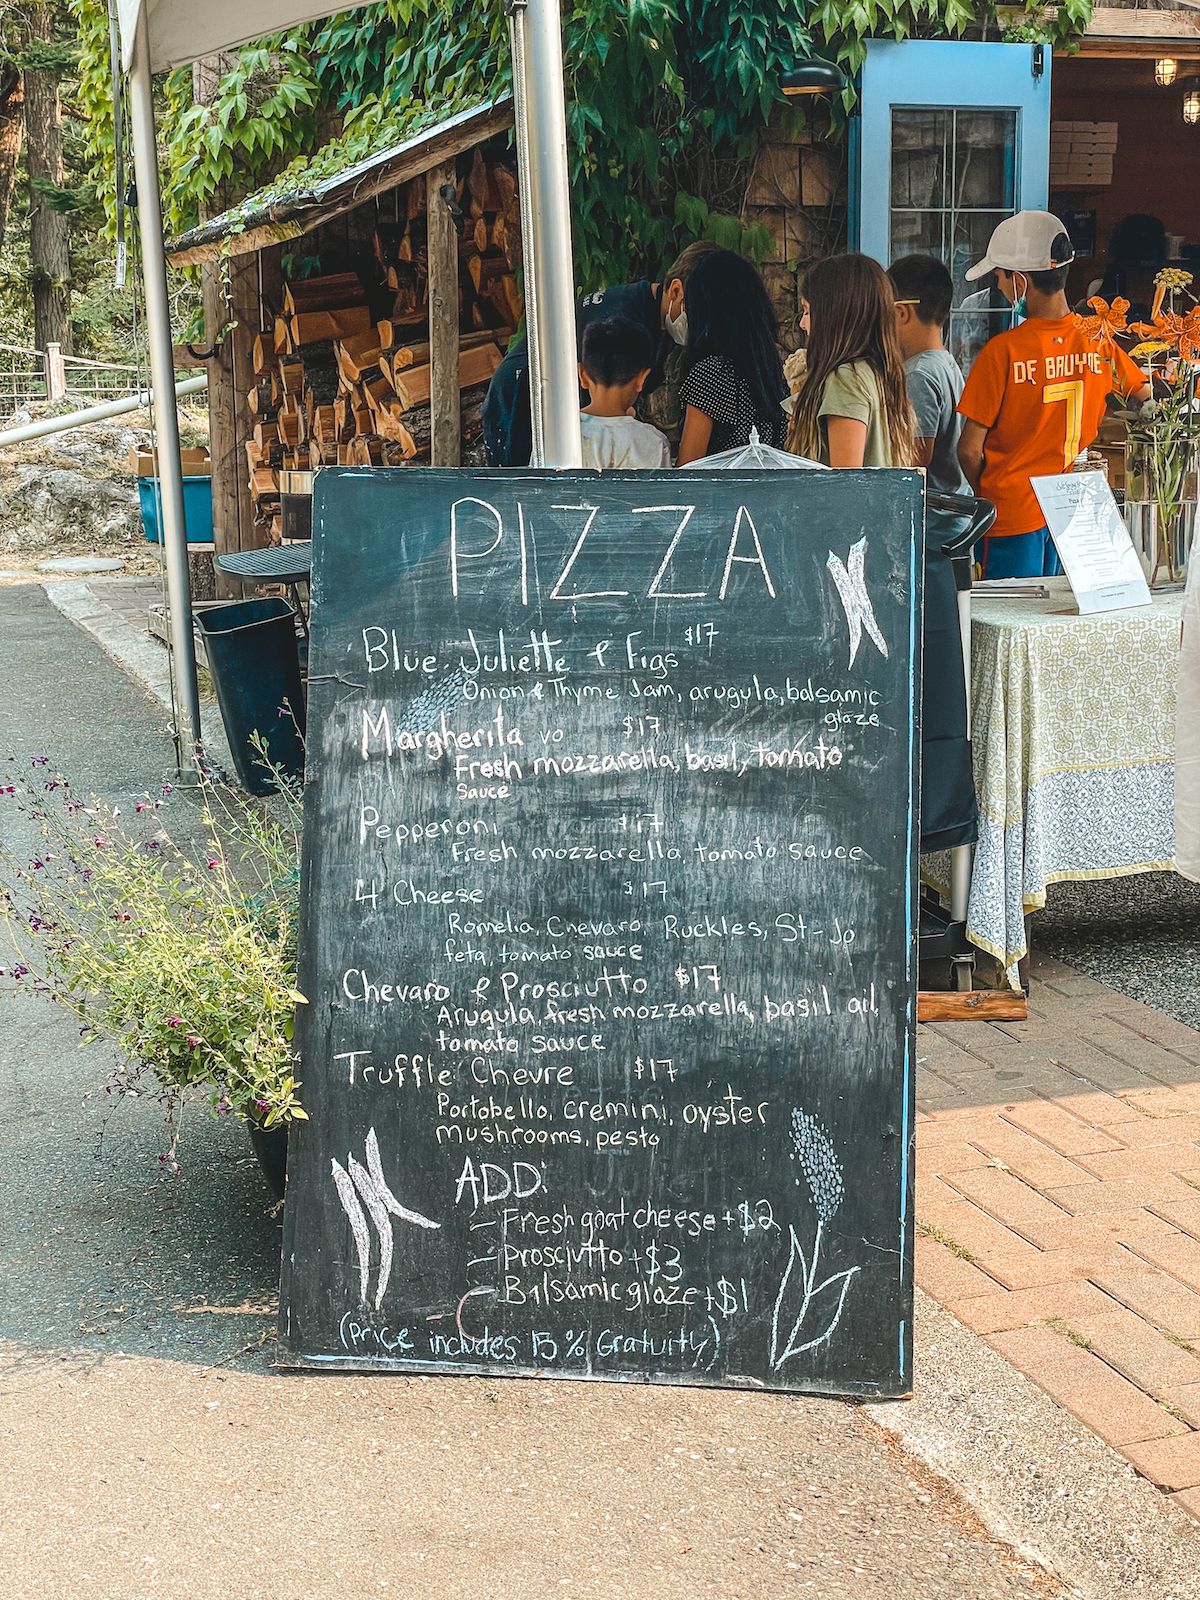 DE BRUYNE
7
PIZZA
Blue Juliette & Figs $17
Onion & Thyme Jam, arugula, balsamic
glaze
Margherita $17
Fresh mozzarella, basil, tomato
sauce
Pepperoni $17
Fresh mozzarella, tomato sauce
4 Cheese $17
Romelia, Chevaro, Ruckles, St-Jo
feta, tomato sauce
Chevaro & Prosciutto $17
Arugula, fresh mozzarella, basil oil,
tomato sauce
Truffle Chevre $17
Portobello, cremini, oyster
mushrooms, pesto
ADD:
- Fresh goat cheese + $2
- Prosciutto + $3
- Balsamic glaze + $1
(Price includes 15% Gratuity)